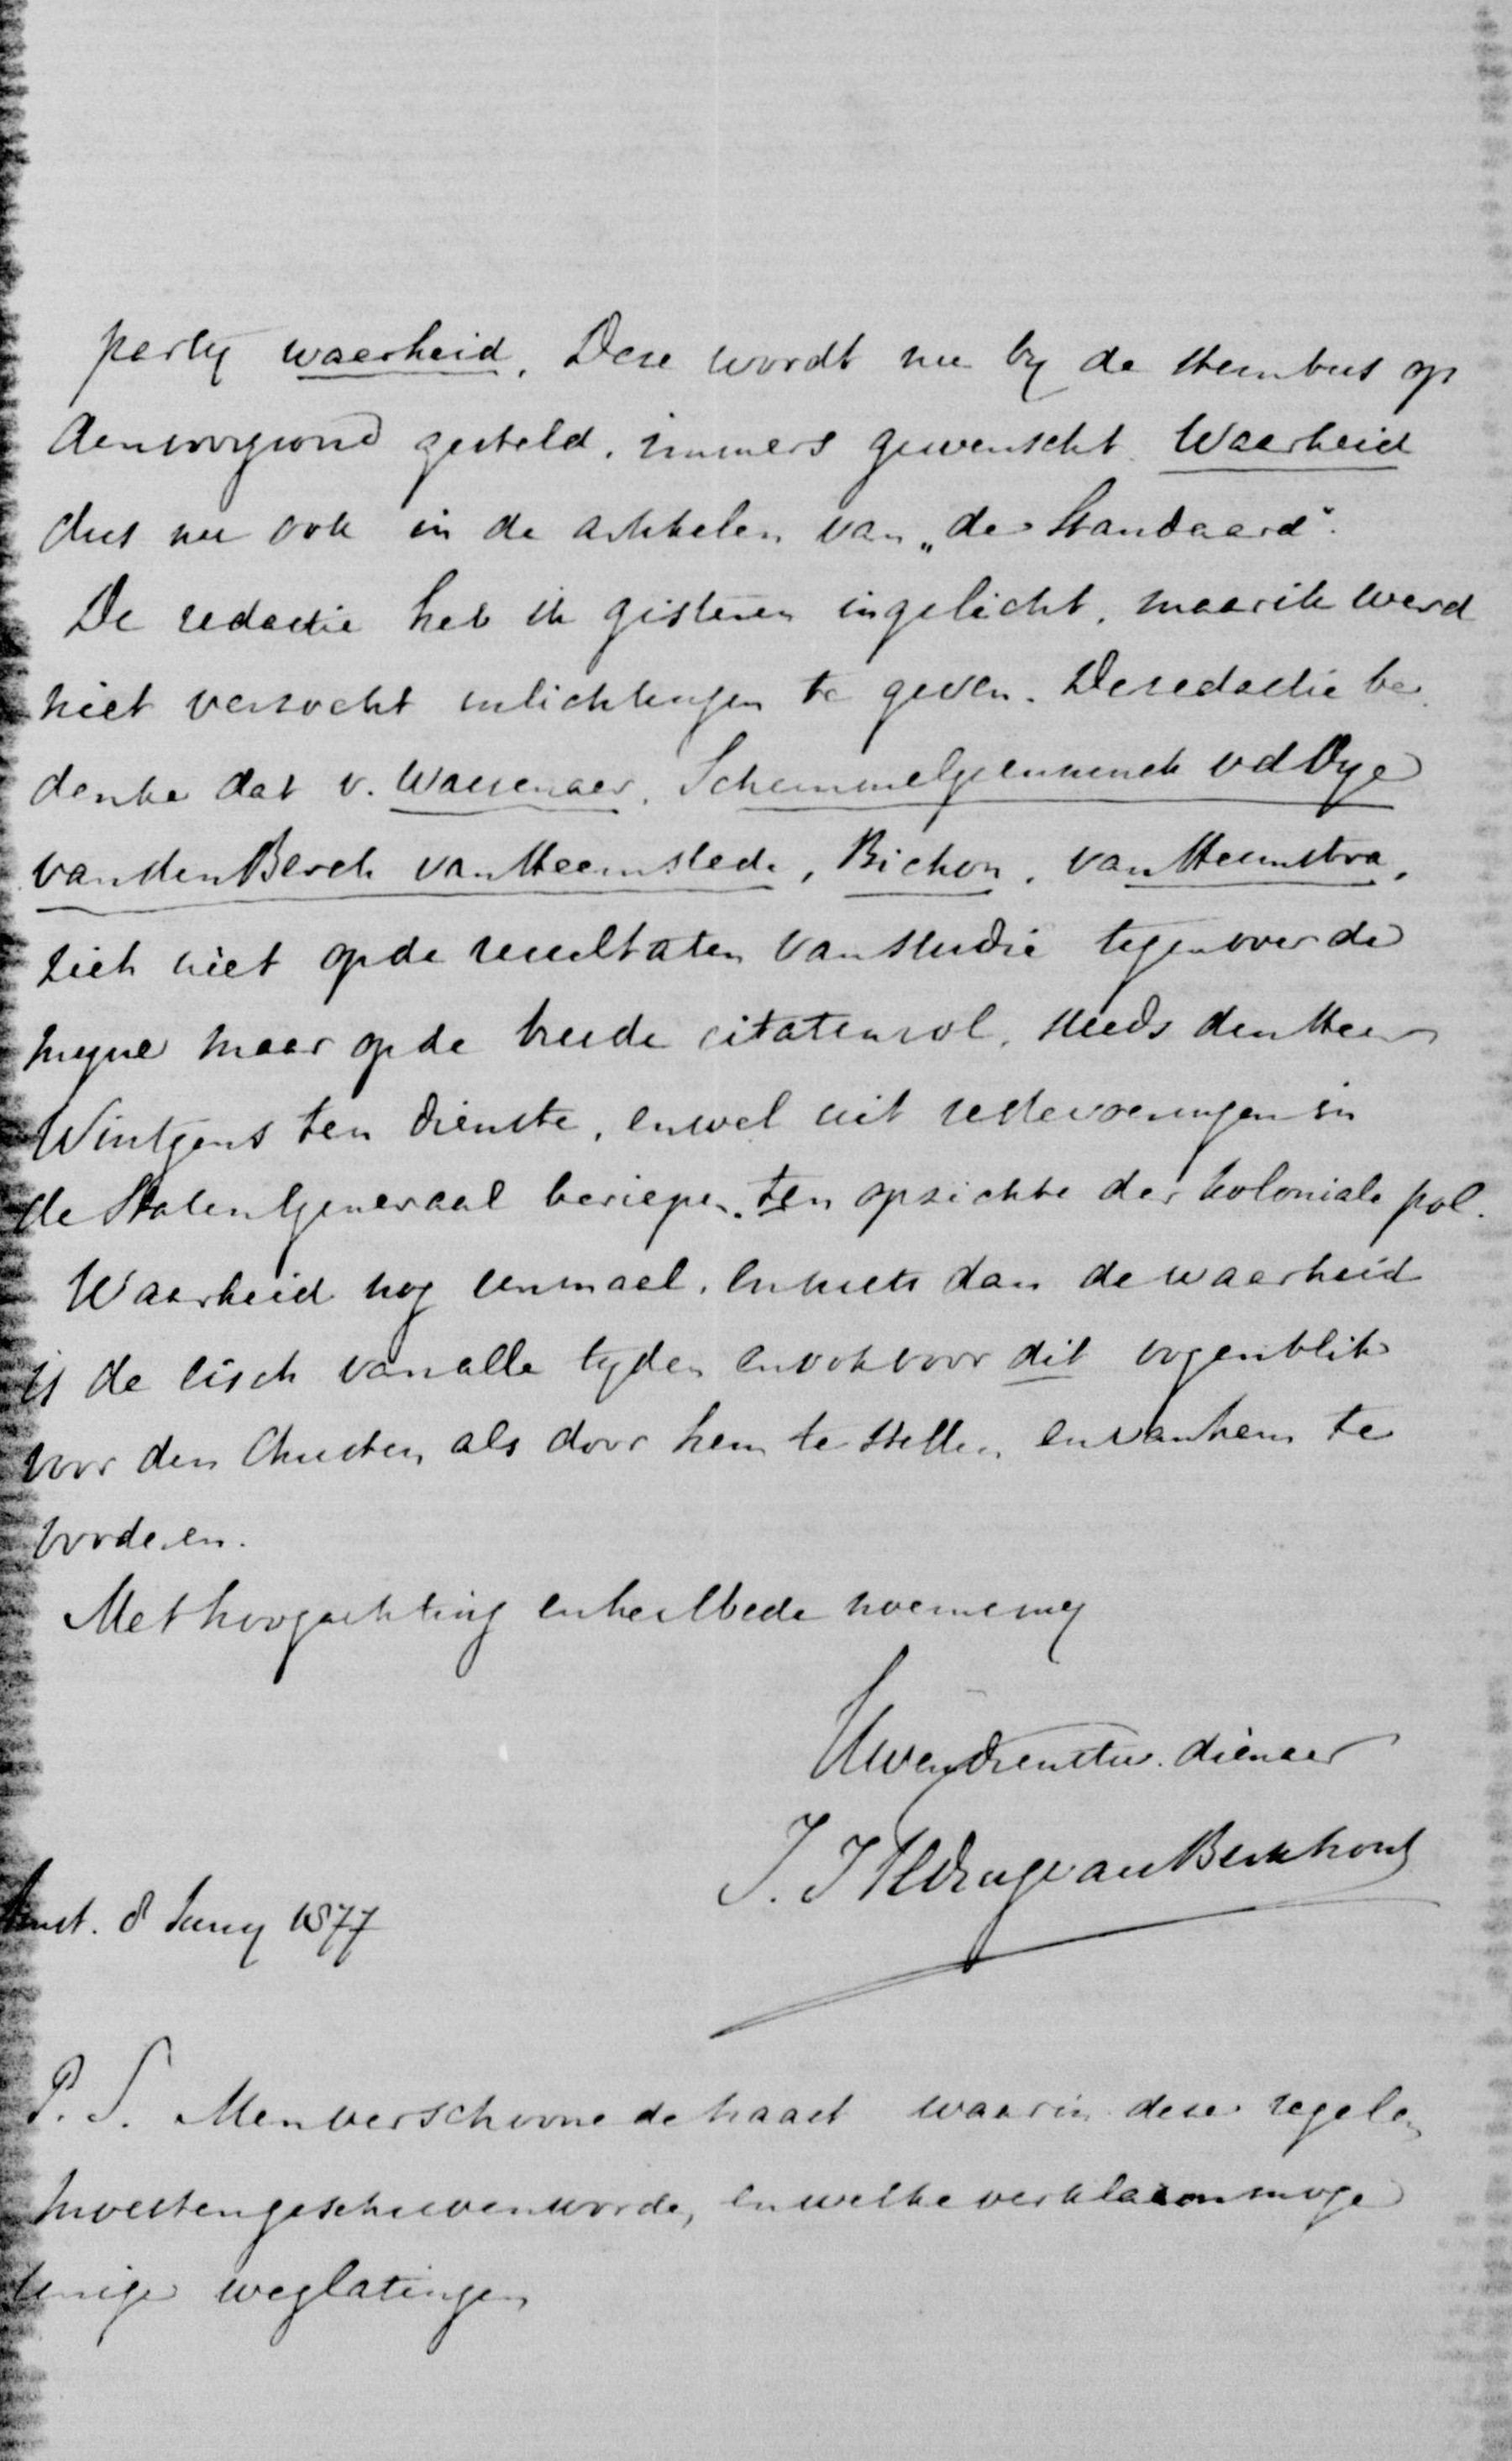 party waarheid. Deze wordt nu by de stembus op
den voorgrond gesteld, immers gewenscht. Waarheid
dus nu ook in de artikelen van „de Standaard".
De redactie heb ik gisteren ingelicht, maar ik werd
niet verzocht inlichtingen te geven. De redactie be
denke dat v. Wassenaer, Schimmelpenninck vd Oye
van den Berch van Heemstede, Bichon, van Heemstra,
zich niet op de resultaten van studie tegenover de
myne maar op de breede citatenrol, steeds den Heer
Wintgens ten dienste, en wel uit redevoeringen in
de Staten Generaal beriepen ten opzichte der koloniale pol.
Waarheid nog eenmaal, en niets dan de waarheid
is de eisch van alle tyden en ook voor dit oogenblik
voor den Christen, als door hem te stellen en van hem te
vorderen.
Met hoogachting en heilbede noeme my
Uwen dienstw. dienaer
J. J. Teding van Berkhout
Amst. 8 Juny 1877
P. S. Men verschoone de haast waarin deze regelen
moesten geschreven worden, en welke verklaren moge
eenige weglatingen